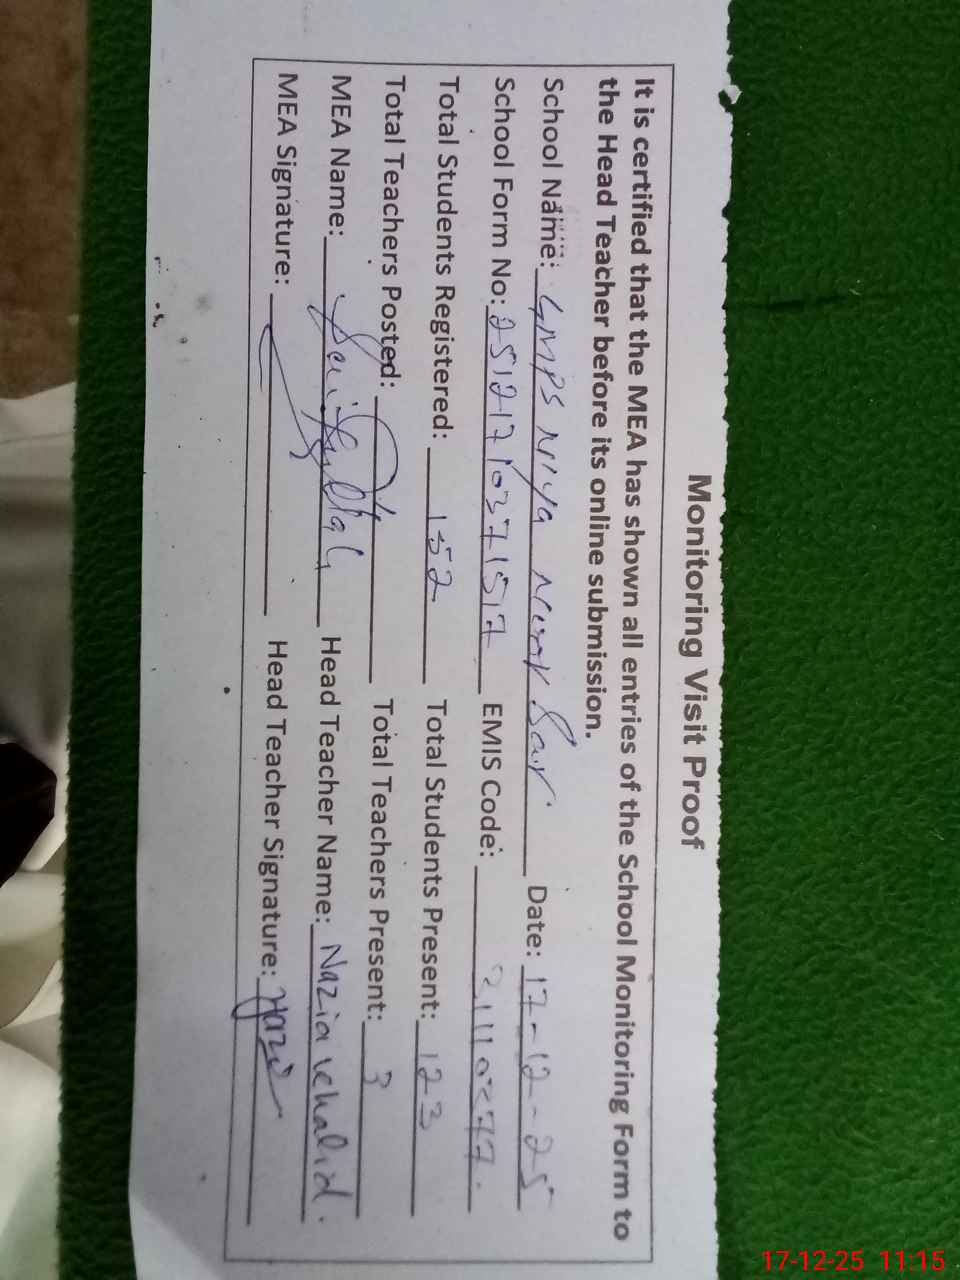 Monitoring Visit Proof
It is certified that the MEA has shown all entries of the School Monitoring Form to
the Head Teacher before its online submission.
School Name: GMPS Date: 17-12-25
School Form No: 25121710371517 EMIS Code:
Total Students Registered: 152 Total Students Present: 123
Total Teachers Posted: Total Teachers Present: 3
MEA Name: Saifullah Head Teacher Name: Nazia Khalid.
MEA Signature: Head Teacher Signature:
17-12-25 11:15